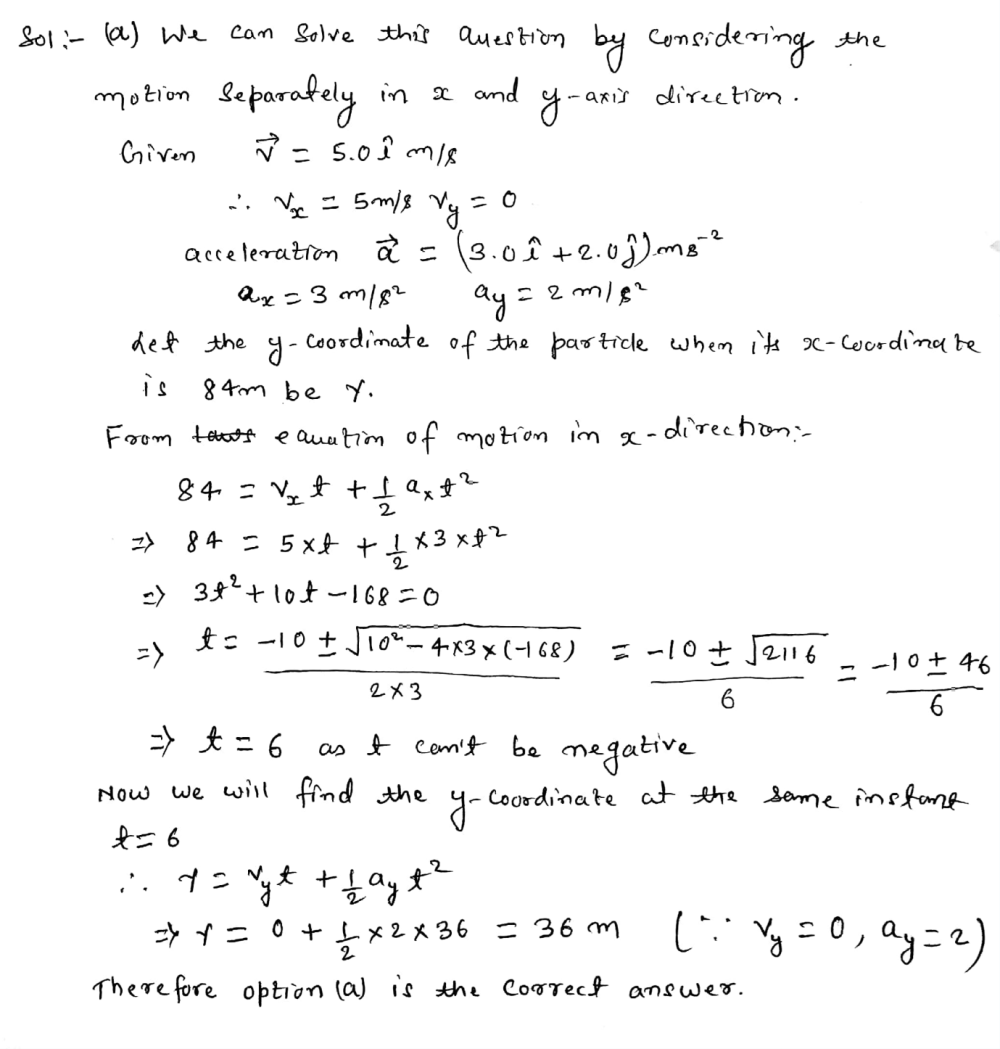 Sol:- (a) We can Solve this Question by Considering the
motion Separately in x and y-axis direction.
Given v⃗ = 5.0 î m/s
∴ vₓ = 5m/s v_y = 0
acceleration a⃗ = (3.0 î + 2.0 ĵ) ms⁻²
aₓ = 3 m/s² a_y = 2 m/s²
Let the y-coordinate of the particle when its x-coordinate
is 84m be Y.
From equation of motion in x-direction:-
84 = vₓ t + 1/2 aₓ t²
⇒ 84 = 5 × t + 1/2 × 3 × t²
⇒ 3t² + 10t - 168 = 0
⇒ t = (-10 ± √(10² - 4×3×(-168)))/(2×3) = (-10 ± √2116)/6 = (-10 ± 46)/6
⇒ t = 6 as t can't be negative
Now we will find the y-coordinate at the same instant
t = 6
∴ Y = v_y t + 1/2 a_y t²
⇒ Y = 0 + 1/2 × 2 × 36 = 36 m (∵ v_y = 0, a_y = 2)
Therefore option (a) is the correct answer.